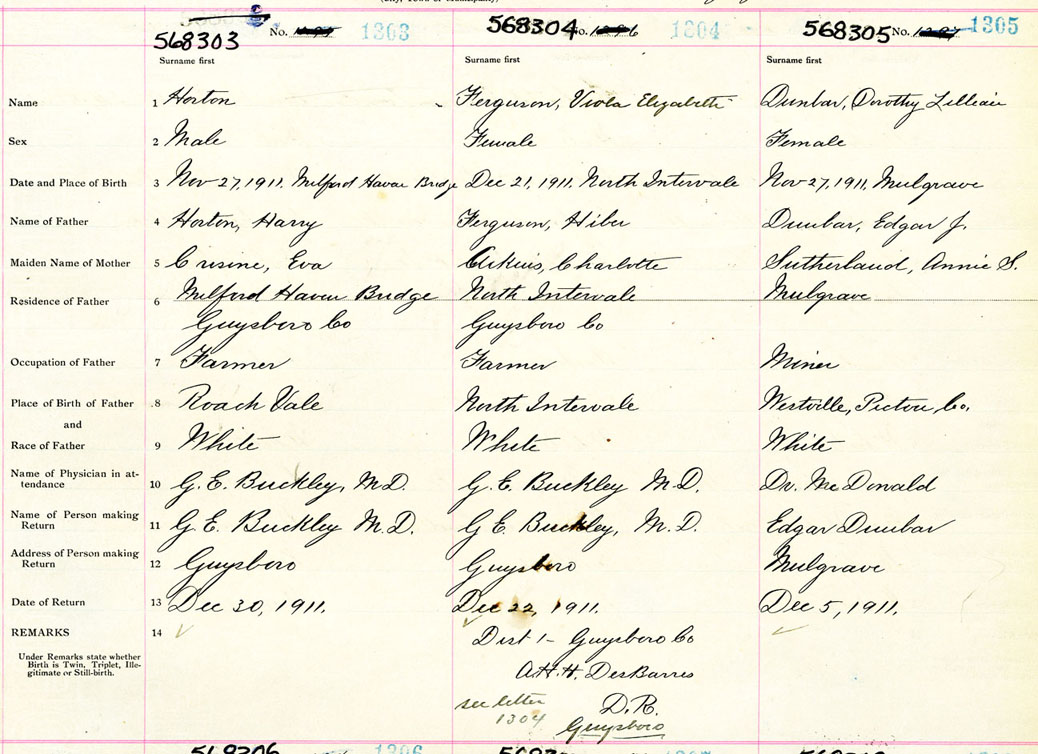 (City, Town or Municipality)
568303 No. 1303 568304 No. 1296 1304 568305 No. 1297 1305
Surname first Surname first Surname first
Name 1 Horton Ferguson, Viola Elizabeth Dunbar, Dorothy Lillian
Sex 2 Male Female Female
Date and Place of Birth 3 Nov 27, 1911. Milford Haven Bridge Dec 21, 1911. North Intervale Nov 27, 1911, Mulgrave
Name of Father 4 Horton, Harry Ferguson, Hiber Dunbar, Edgar J.
Maiden Name of Mother 5 Crisine, Eva Charlotte Sutherland, Annie S.
Residence of Father 6 Milford Haven Bridge North Intervale Mulgrave
Guysboro Co Guysboro Co
Occupation of Father 7 Farmer Farmer Miner
Place of Birth of Father 8 Roach Vale North Intervale Westville, Pictou, Co.
and
Race of Father 9 White White White
Name of Physician in at-
tendance 10 G. E. Buckley, M.D. G. E. Buckley M.D. Dr. McDonald
Name of Person making
Return 11 G. E. Buckley M.D. G E Buckley, M.D. Edgar Dunbar
Address of Person making
Return 12 Guysboro Guysboro Mulgrave
Date of Return 13 Dec 30, 1911. Dec 22, 1911. Dec 5, 1911.
REMARKS 14 Dist 1- Guysboro Co
Under Remarks state whether
Birth is Twin, Triplet, Ille-
gitimate or Still-birth.
A.H.H. DesBarres
see letter D.R.
1304 Guysboro
568306 1306 1307